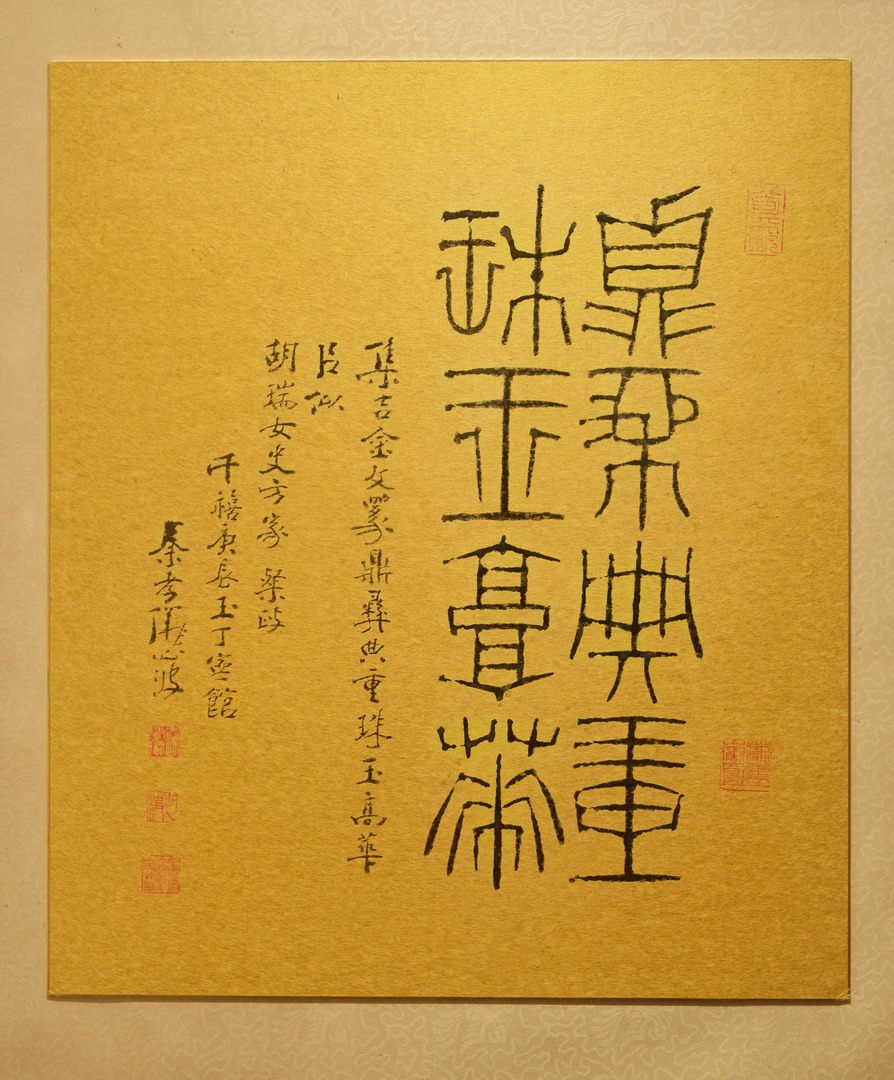 鼎彝典重
珠玉高華
集吉金文鼎彝典重珠玉高華
似
胡瑞女史方家 粲政
千禧庚辰玉丁寧館
秦孝儀心波